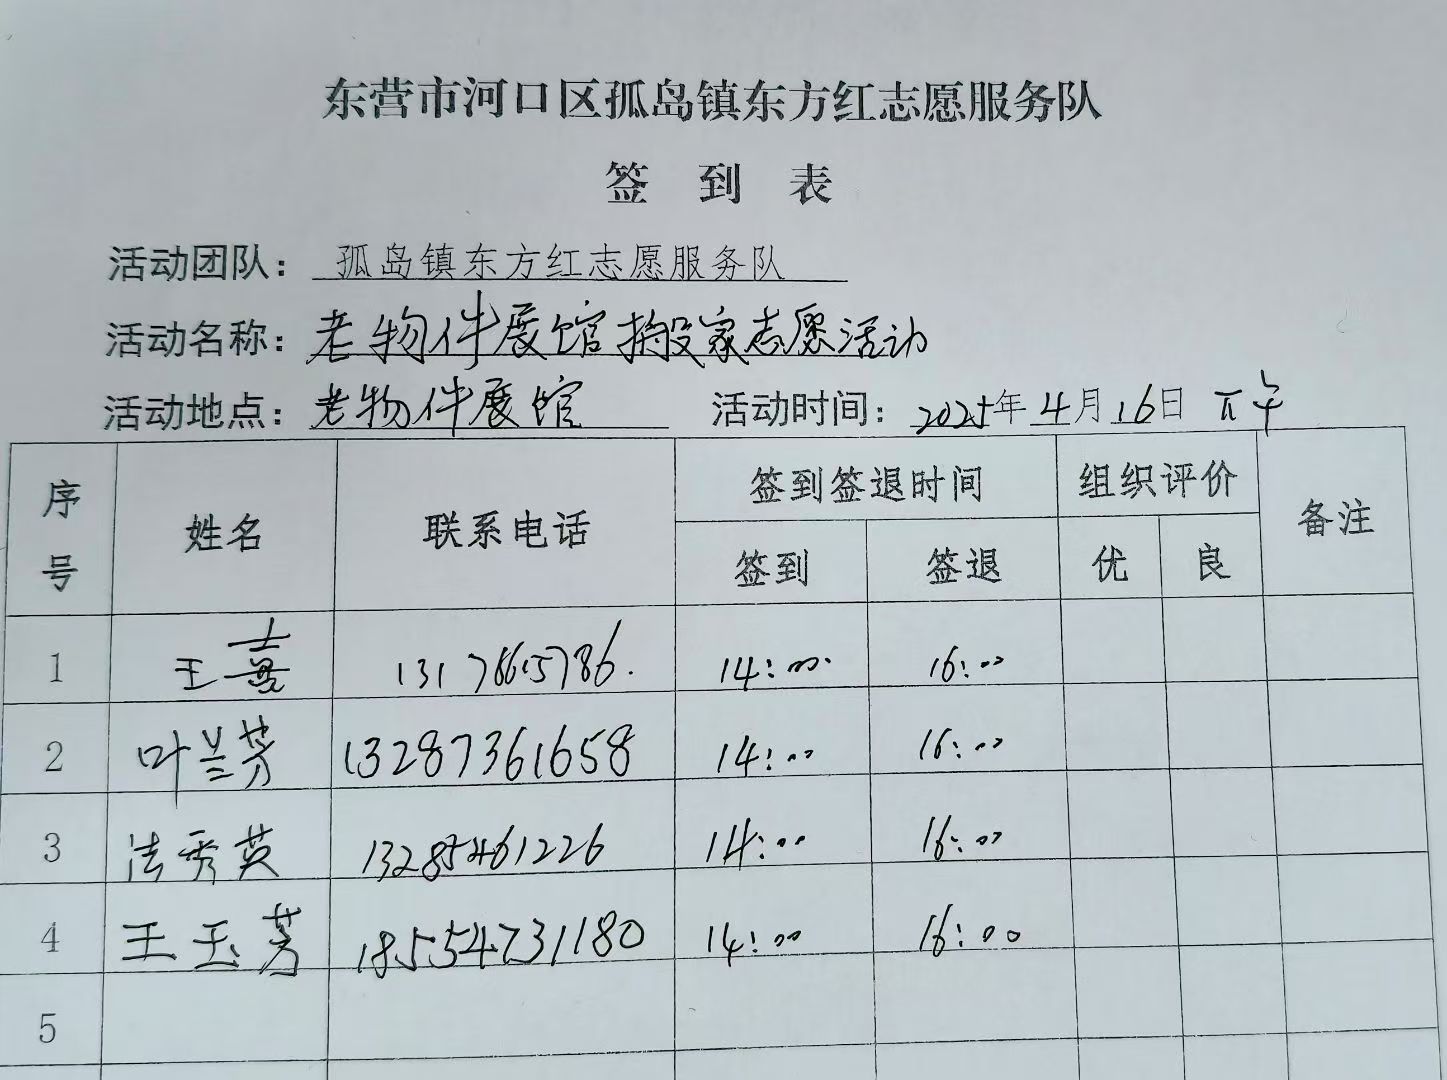 东营市河口区孤岛镇东方红志愿服务队
签 到 表
活动团队： 孤岛镇东方红志愿服务队
活动名称：老物件展馆搬家志愿活动
活动地点：老物件展馆 活动时间：2025年4月16日 下午
序号 姓名 联系电话 签到签退时间 组织评价 备注
签到 签退 优 良
1 王 14:00 16:00
2 叶兰芳 13287361658 14:00 16:00
3 法秀英 13285461226 14:00 16:00
4 王玉芳 18554731180 14:00 16:00
5